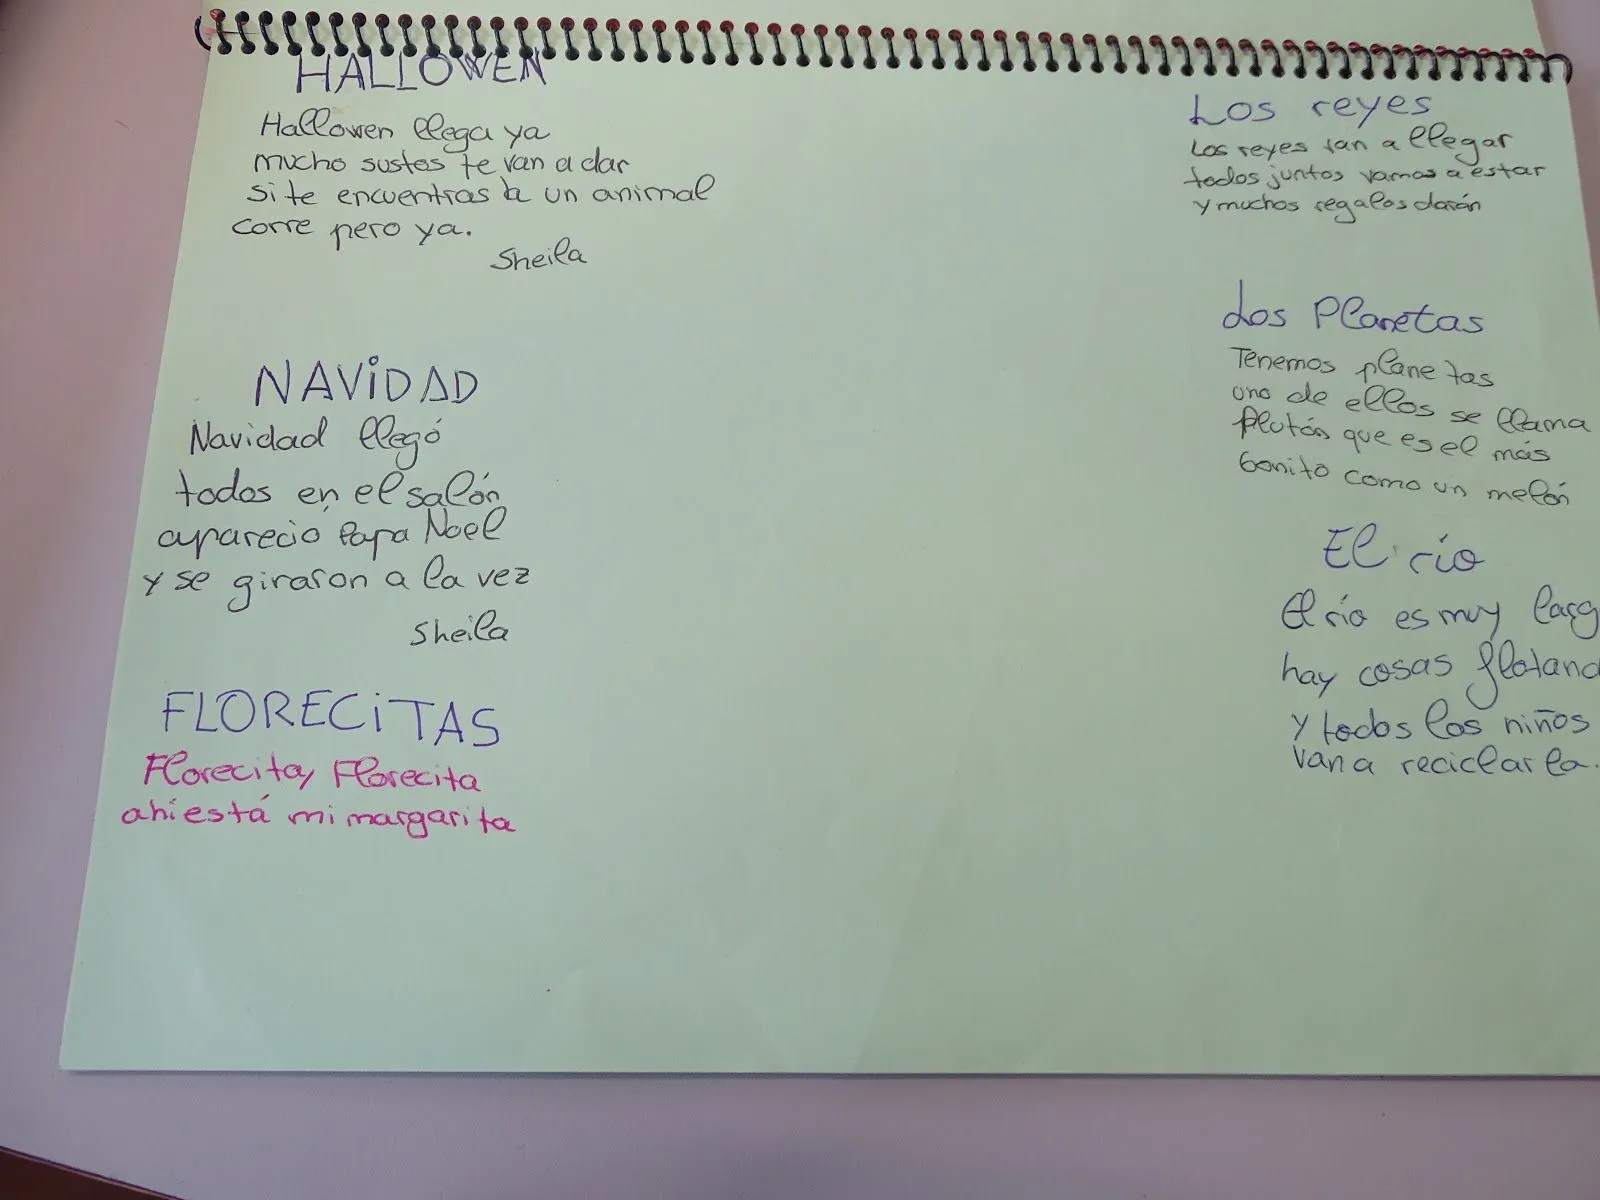 HALLOWEN
Hallowen llega ya
mucho sustos te van a dar
si te encuentras a un animal
corre pero ya.
Sheila
NAVIDAD
Navidad llegó
todos en el salón
apareció Papa Noel
y se giraron a la vez
Sheila
FLORECITAS
Florecita, Florecita
ahí está mi margarita
Los reyes
Los reyes van a llegar
todos juntos vamos a estar
y muchos regalos darán
Los Planetas
Tenemos planetas
uno de ellos se llama
plutón que es el más
bonito como un melón
El río
El río es muy larg
hay cosas flotand
y todos los niños
van a reciclarla.